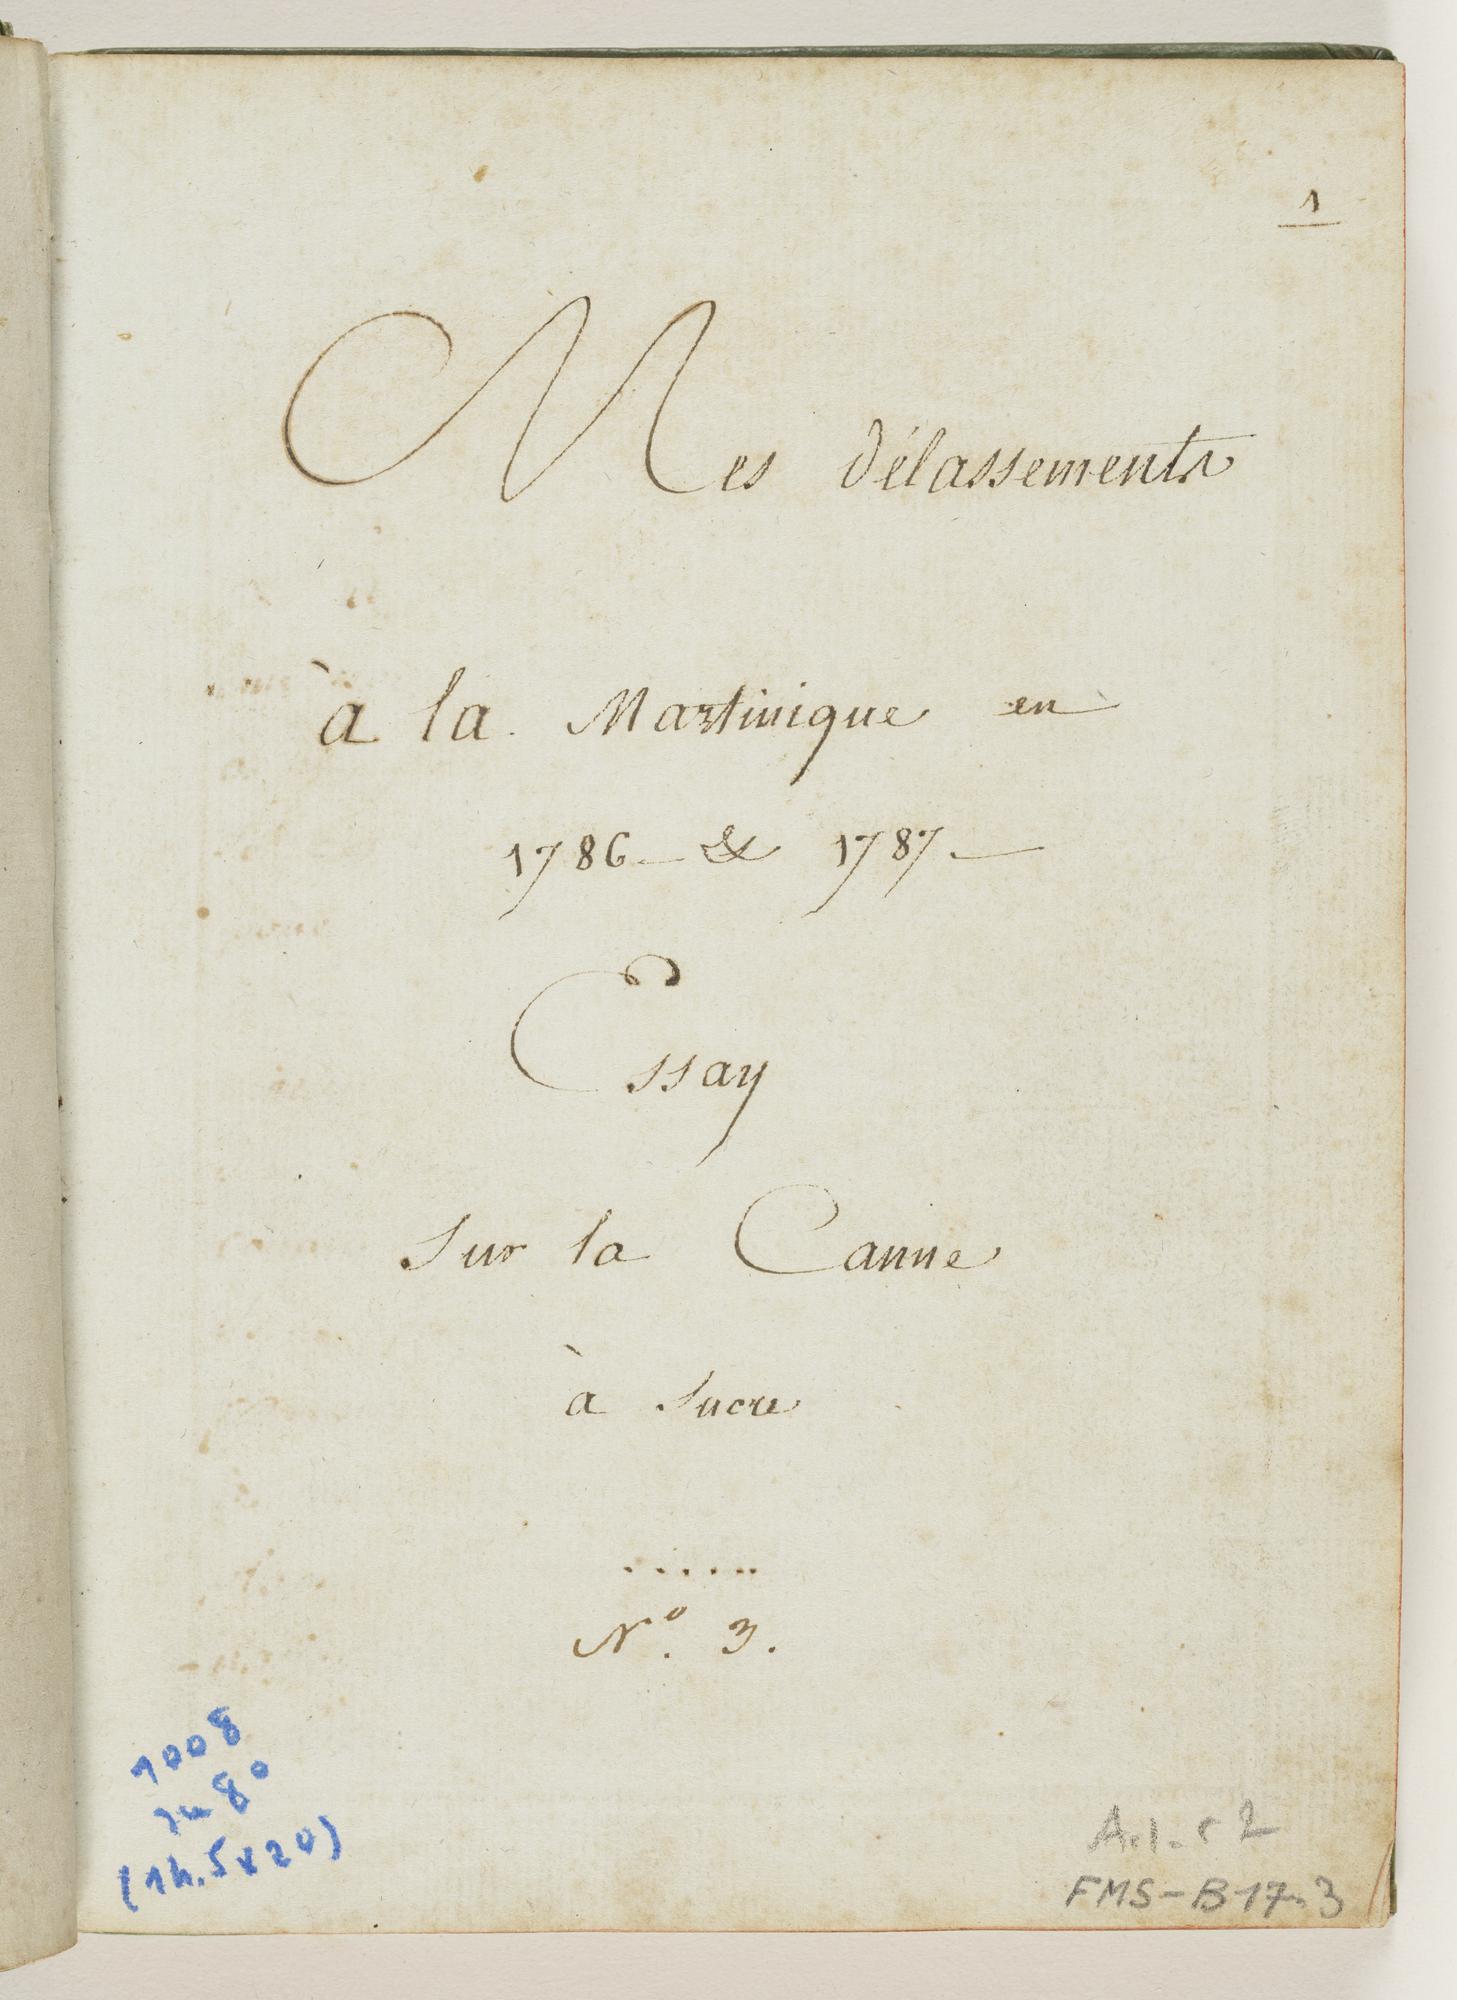 1
Mes délassements
à la Martinique en
1786 & 1787
Essay
Sur la Canne
à Sucre
......
N.º 3.
1008
in 8º
(14.5x20)
2
FMS-B17.3